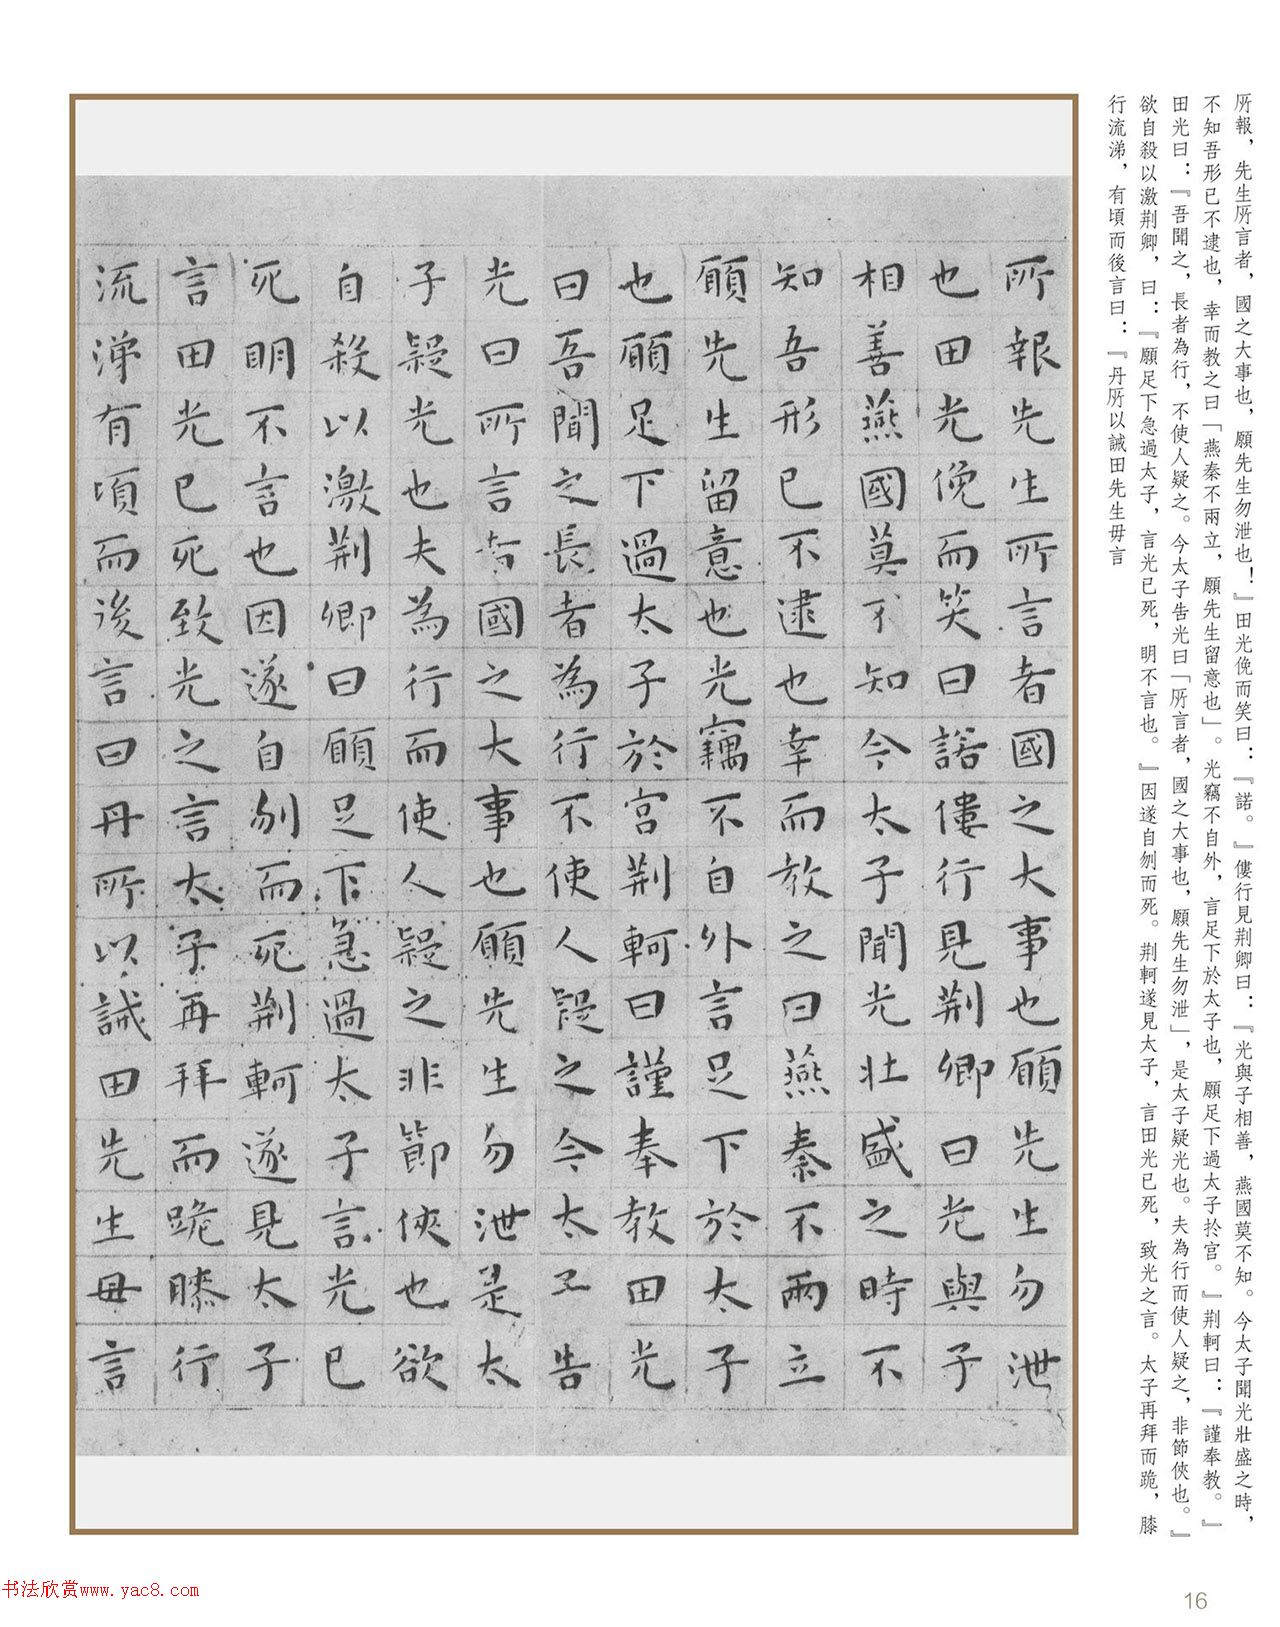 所報，先生所言者，國之大事也，願先生勿泄也！』田光俛而笑曰：『諾。』僂行見荆卿曰：『光與子相善，燕國莫不知。今太子聞光壯盛之時，
不知吾形已不逮也，幸而教之曰「燕秦不兩立，願先生留意也」。光竊不自外，言足下於太子也，願足下過太子於宮。』荆軻曰：『謹奉教。』
田光曰：『吾聞之，長者為行，不使人疑之。今太子告光曰「所言者，國之大事也，願先生勿泄」，是太子疑光也。夫為行而使人疑之，非節俠也。』
欲自殺以激荆卿，曰：『願足下急過太子，言光已死，明不言也。』因遂自刎而死。荆軻遂見太子，言田光已死，致光之言。太子再拜而跪，膝
行流涕，有頃而後言曰：『丹所以誡田先生毋言
所報先生所言者國之大事也願先生勿泄
也田光俛而笑曰諾僂行見荆卿曰光與子
相善燕國莫不知今太子聞光壯盛之時不
知吾形已不逮也幸而教之曰燕秦不兩立
願先生留意也光竊不自外言足下於太子
也願足下過太子於宮荆軻曰謹奉教田光
曰吾聞之長者為行不使人疑之今太子告
光曰所言者國之大事也願先生勿泄是太
子疑光也夫為行而使人疑之非節俠也欲
自殺以激荆卿曰願足下急過太子言光已
死明不言也因遂自刎而死荆軻遂見太子
言田光已死致光之言太子再拜而跪膝行
流涕有頃而後言曰丹所以誡田先生毋言
书法欣赏www.yac8.com
16